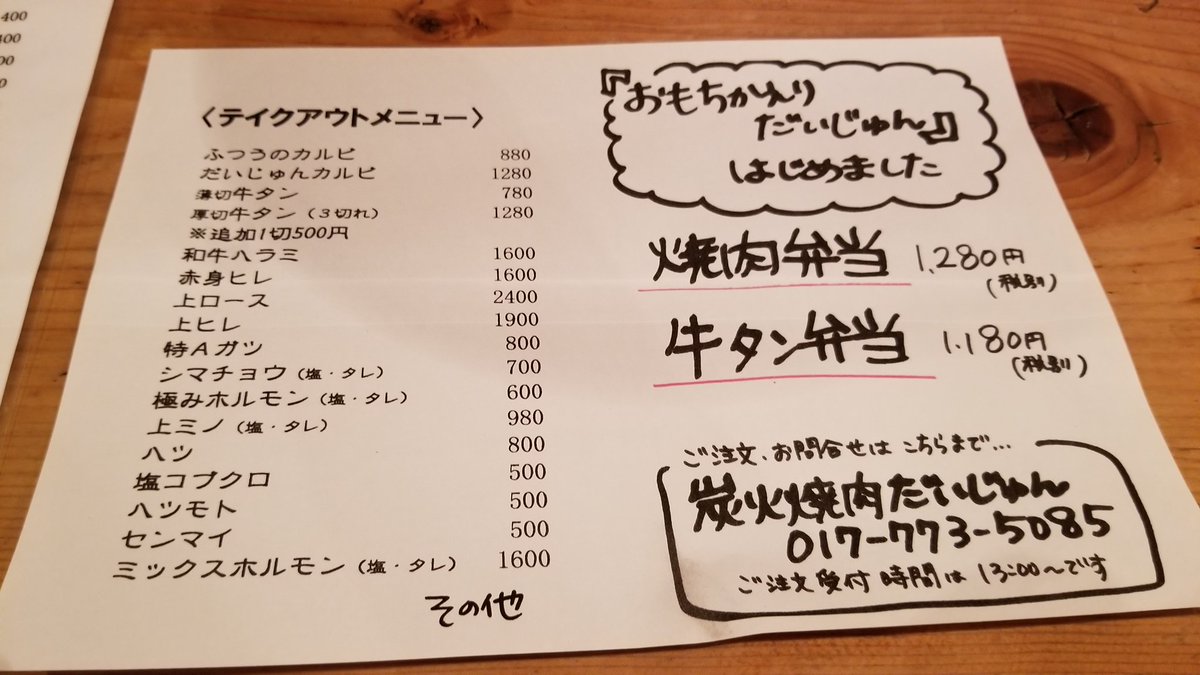 400
400
00
0
〈テイクアウトメニュー〉
ふつうのカルビ 880
だいじゅんカルビ 1280
薄切牛タン 780
厚切牛タン（３切れ） 1280
※追加1切500円
和牛ハラミ 1600
赤身ヒレ 1600
上ロース 2400
上ヒレ 1900
特Ａガツ 800
シマチョウ（塩・タレ） 700
極みホルモン（塩・タレ） 600
上ミノ（塩・タレ） 980
ハツ 800
塩コブクロ 500
ハツモト 500
センマイ 500
ミックスホルモン（塩・タレ） 1600
その他
『おもちかえり
だいじゅん』
はじめました
焼肉弁当 1,280円
（税別）
牛タン弁当 1.180円
（税別）
ご注文、お問合せは こちらまで…
炭火焼肉だいじゅん
017-773-5085
ご注文受付時間は 13:00〜です